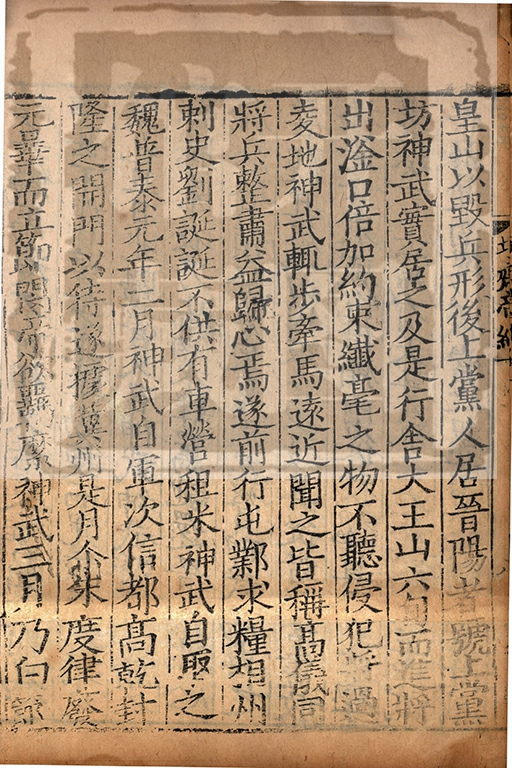 皇山以毀兵形後上黨人居晉陽者號上黨
坊神武實居之及是行舍大王山六旬而進將
出滏口倍加約束纖毫之物不聽侵犯將過
麦地神武輒步牽馬遠近聞之皆稱高儀同
將兵整肅益歸心焉遂前行屯鄴求糧相州
刺史劉誕誕不供有車營租米神武自取之
魏普泰元年二月神武自軍次信都高乾封
隆之開門以待遂據冀州是月尒朱度律廢
元曄而立節閔帝欲羈縻神武三月乃白